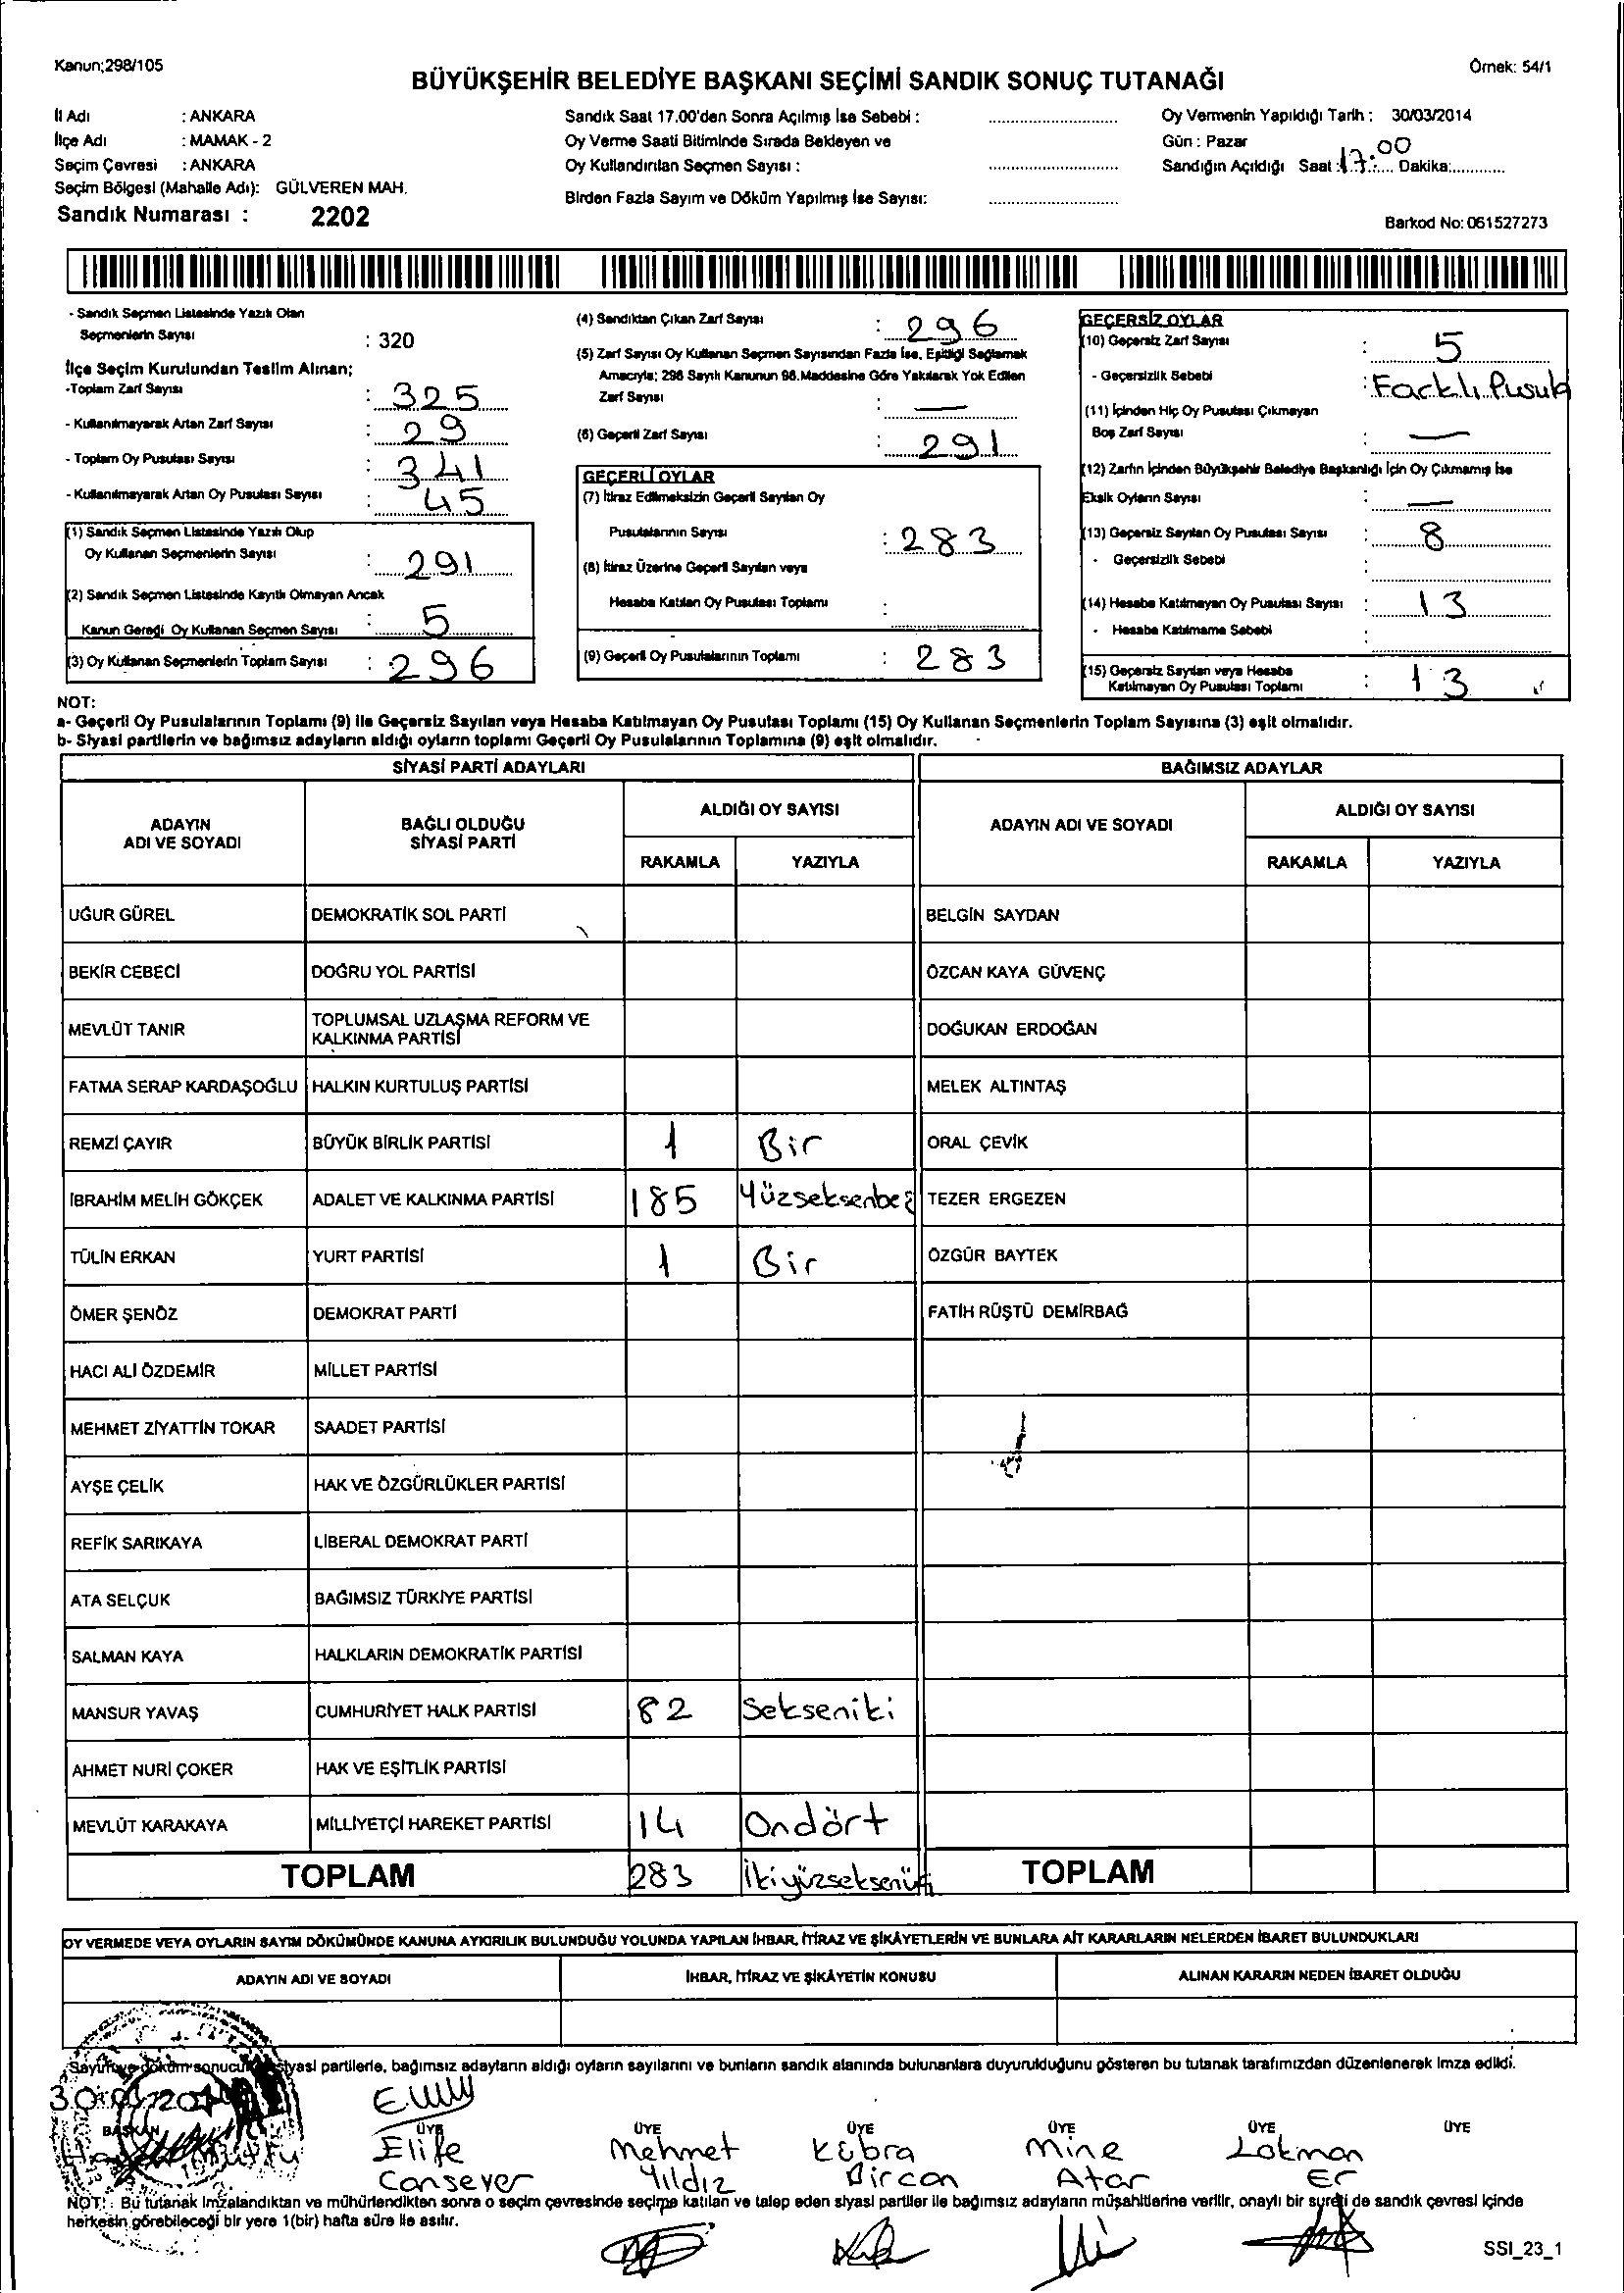 Kanun;298/105
Örnek: 54/1
BÜYÜKŞEHİR BELEDİYE BAŞKANI SEÇİMİ SANDIK SONUÇ TUTANAĞI
İl Adı : ANKARA
İlçe Adı : MAMAK - 2
Seçim Çevresi : ANKARA
Seçim Bölgesi (Mahalle Adı): GÜLVEREN MAH.
Sandık Numarası : 2202
Sandık Saat 17.00'den Sonra Açılmış İse Sebebi :
Oy Verme Saati Bitiminde Sırada Bekleyen ve
Oy Kullandırılan Seçmen Sayısı :
Birden Fazla Sayım ve Döküm Yapılmış İse Sayısı:
Oy Vermenin Yapıldığı Tarih : 30/03/2014
Gün : Pazar
Sandığın Açıldığı Saat : 17:00 Dakika:
Barkod No: 061527273
- Sandık Seçmen Listesinde Yazılı Olan
Seçmenlerin Sayısı : 320
İlçe Seçim Kurulundan Teslim Alınan;
-Toplam Zarf Sayısı : 325
- Kullanılmayarak Artan Zarf Sayısı : 29
- Toplam Oy Pusulası Sayısı : 341
- Kullanılmayarak Artan Oy Pusulası Sayısı : 45
(1) Sandık Seçmen Listesinde Yazılı Olup
Oy Kullanan Seçmenlerin Sayısı : 291
(2) Sandık Seçmen Listesinde Kayıtlı Olmayan Ancak
Kanun Gereği Oy Kullanan Seçmen Sayısı : 5
(3) Oy Kullanan Seçmenlerin Toplam Sayısı : 296
(4) Sandıktan Çıkan Zarf Sayısı : 296
(5) Zarf Sayısı Oy Kullanan Seçmen Sayısından Fazla İse, Eşitliği Sağlamak
Amacıyla; 298 Sayılı Kanunun 98.Maddesine Göre Yakılarak Yok Edilen
Zarf Sayısı : —
(6) Geçerli Zarf Sayısı : 291
GEÇERLİ OYLAR
(7) İtiraz Edilmeksizin Geçerli Sayılan Oy
Pusulalarının Sayısı : 283
(8) İtiraz Üzerine Geçerli Sayılan veya
Hesaba Katılan Oy Pusulası Toplamı :
(9) Geçerli Oy Pusulalarının Toplamı : 283
GEÇERSİZ OYLAR
(10) Geçersiz Zarf Sayısı : 5
- Geçersizlik Sebebi : Farklı Pusula
(11) İçinden Hiç Oy Pusulası Çıkmayan
Boş Zarf Sayısı : —
(12) Zarfın İçinden Büyükşehir Belediye Başkanlığı İçin Oy Çıkmamış İse
Eksik Oyların Sayısı : —
(13) Geçersiz Sayılan Oy Pusulası Sayısı : 8
- Geçersizlik Sebebi :
(14) Hesaba Katılmayan Oy Pusulası Sayısı : 13
- Hesaba Katılmama Sebebi :
(15) Geçersiz Sayılan veya Hesaba
Katılmayan Oy Pusulası Toplamı : 13
NOT:
a- Geçerli Oy Pusulalarının Toplamı (9) ile Geçersiz Sayılan veya Hesaba Katılmayan Oy Pusulası Toplamı (15) Oy Kullanan Seçmenlerin Toplam Sayısına (3) eşit olmalıdır.
b- Siyasi partilerin ve bağımsız adayların aldığı oyların toplamı Geçerli Oy Pusulalarının Toplamına (9) eşit olmalıdır.
SİYASİ PARTİ ADAYLARI BAĞIMSIZ ADAYLAR
ADAYIN ADI VE SOYADI BAĞLI OLDUĞU SİYASİ PARTİ ALDIĞI OY SAYISI RAKAMLA YAZIYLA ADAYIN ADI VE SOYADI ALDIĞI OY SAYISI RAKAMLA YAZIYLA
UĞUR GÜREL DEMOKRATİK SOL PARTİ BELGİN SAYDAN
BEKİR CEBECİ DOĞRU YOL PARTİSİ ÖZCAN KAYA GÜVENÇ
MEVLÜT TANIR TOPLUMSAL UZLAŞMA REFORM VE KALKINMA PARTİSİ DOĞUKAN ERDOĞAN
FATMA SERAP KARDAŞOĞLU HALKIN KURTULUŞ PARTİSİ MELEK ALTINTAŞ
REMZİ ÇAYIR BÜYÜK BİRLİK PARTİSİ 1 Bir ORAL ÇEVİK
İBRAHİM MELİH GÖKÇEK ADALET VE KALKINMA PARTİSİ 185 Yüzseksenbeş TEZER ERGEZEN
TÜLİN ERKAN YURT PARTİSİ 1 Bir ÖZGÜR BAYTEK
ÖMER ŞENÖZ DEMOKRAT PARTİ FATİH RÜŞTÜ DEMİRBAĞ
HACI ALİ ÖZDEMİR MİLLET PARTİSİ
MEHMET ZİYATTİN TOKAR SAADET PARTİSİ
AYŞE ÇELİK HAK VE ÖZGÜRLÜKLER PARTİSİ
REFİK SARIKAYA LİBERAL DEMOKRAT PARTİ
ATA SELÇUK BAĞIMSIZ TÜRKİYE PARTİSİ
SALMAN KAYA HALKLARIN DEMOKRATİK PARTİSİ
MANSUR YAVAŞ CUMHURİYET HALK PARTİSİ 82 Sekseniki
AHMET NURİ ÇOKER HAK VE EŞİTLİK PARTİSİ
MEVLÜT KARAKAYA MİLLİYETÇİ HAREKET PARTİSİ 14 Ondört
TOPLAM 283 İkiyüzseksenüç TOPLAM
OY VERMEDE VEYA OYLARIN SAYIM DÖKÜMÜNDE KANUNA AYKIRILIK BULUNDUĞU YOLUNDA YAPILAN İHBAR, İTİRAZ VE ŞİKÂYETLERİN VE BUNLARA AİT KARARLARIN NELERDEN İBARET BULUNDUKLARI
ADAYIN ADI VE SOYADI İHBAR, İTİRAZ VE ŞİKÂYETİN KONUSU ALINAN KARARIN NEDEN İBARET OLDUĞU
Sayım ve döküm sonucu siyasi partilerle, bağımsız adayların aldığı oyların sayılarını ve bunların sandık alanında bulunanlara duyurulduğunu gösteren bu tutanak tarafımızdan düzenlenerek imza edildi.
BAŞKAN ÜYE ÜYE ÜYE ÜYE ÜYE ÜYE
Elife Mehmet Kübra Mine Lokman
Cansever Yıldız Bircan Atar Er
NOT: Bu tutanak imzalandıktan ve mühürlendikten sonra o seçim çevresinde seçime katılan ve talep eden siyasi partiler ile bağımsız adayların müşahitlerine verilir, onaylı bir sureti de sandık çevresi içinde
herkesin görebileceği bir yere 1(bir) hafta süre ile asılır.
SSI_23_1